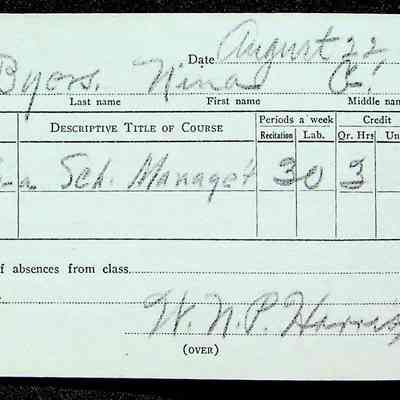 Date August 22
Byers. Nina
Last name First name Middle nam
DESCRIPTIVE TITLE OF COURSE Periods a week Credit
Recitation Lab. Qr. Hrs Un
-a Sch. Managet 30 3
f absences from class
W. N. P.
(OVER)